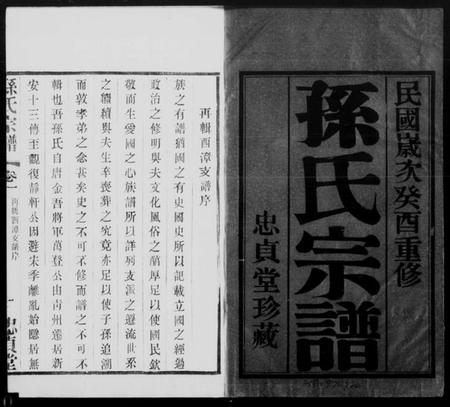 民國歲次癸酉重修
孫氏宗譜
忠貞堂珍藏
再輯西漳支譜序
族之有譜猶國之有史國史所以記載立國之經過
政治之修明與夫文化風俗之蘭厚足以使國民欽
敬而生愛國之心族譜所以詳列支派之源流世系
之賡續與夫生卒喪葬之究竟亦足以使子孫追溯
而敦孝弟之念甚矣史之不可不修而譜之不可不
輯也吾孫氏自唐金吾將軍萬登公由青州遷居新
安十三傳至觀復靜軒公因避宋季離亂始隱居無
孫氏宗譜
卷一
再輯西漳支譜序
一
忠貞堂